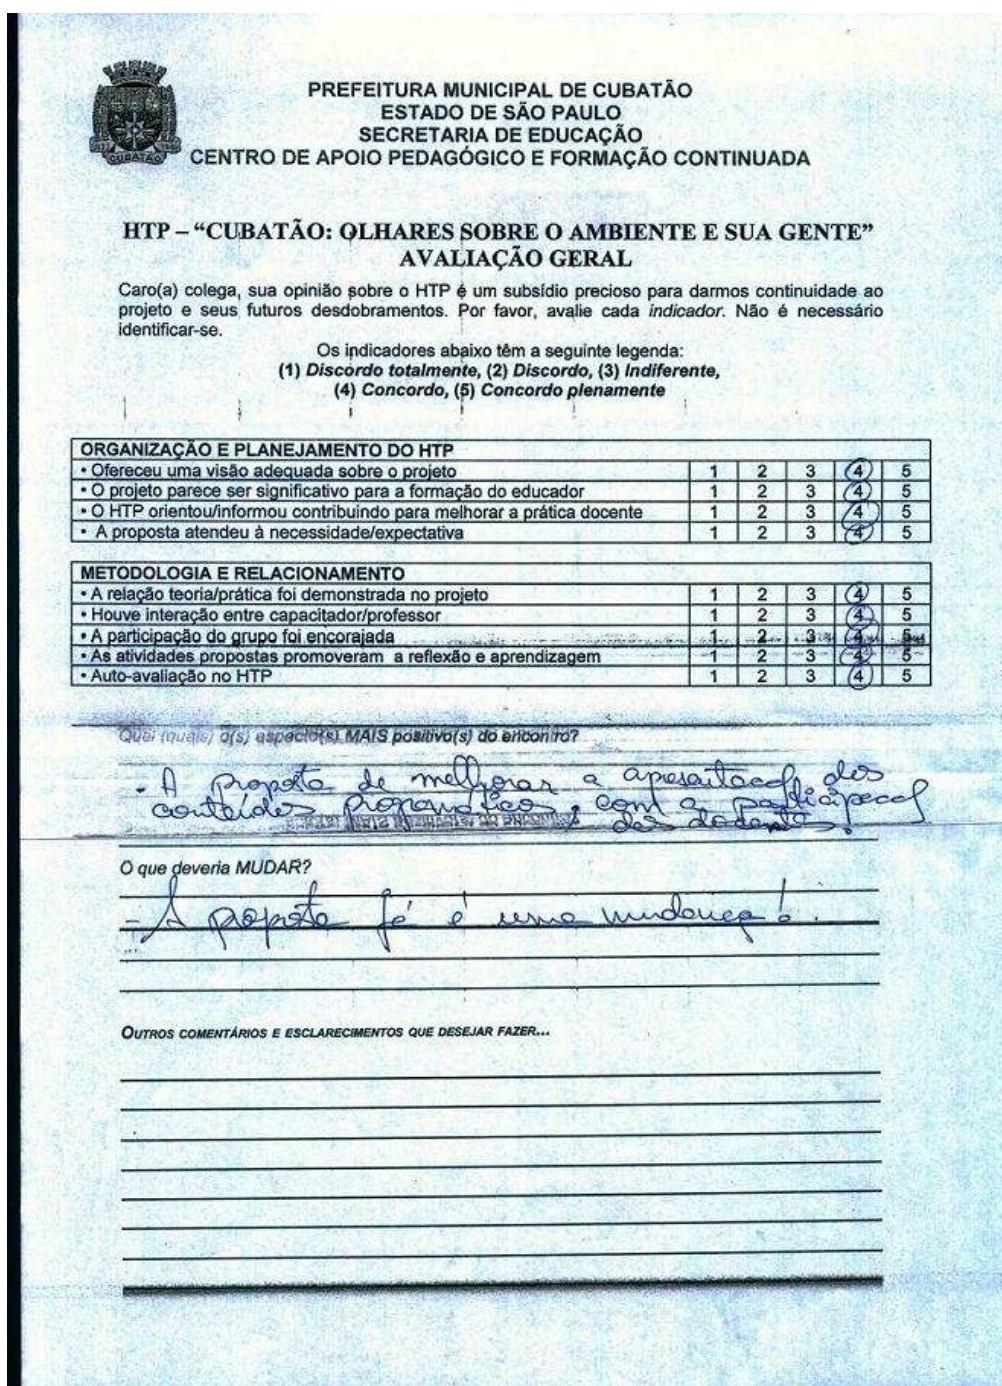 CUBATÃO
PREFEITURA MUNICIPAL DE CUBATÃO
ESTADO DE SÃO PAULO
SECRETARIA DE EDUCAÇÃO
CENTRO DE APOIO PEDAGÓGICO E FORMAÇÃO CONTINUADA
HTP – “CUBATÃO: OLHARES SOBRE O AMBIENTE E SUA GENTE”
AVALIAÇÃO GERAL
Caro(a) colega, sua opinião sobre o HTP é um subsídio precioso para darmos continuidade ao
projeto e seus futuros desdobramentos. Por favor, avalie cada indicador. Não é necessário
identificar-se.
Os indicadores abaixo têm a seguinte legenda:
(1) Discordo totalmente, (2) Discordo, (3) Indiferente,
(4) Concordo, (5) Concordo plenamente
ORGANIZAÇÃO E PLANEJAMENTO DO HTP
• Ofereceu uma visão adequada sobre o projeto 1 2 3 4 5
• O projeto parece ser significativo para a formação do educador 1 2 3 4 5
• O HTP orientou/informou contribuindo para melhorar a prática docente 1 2 3 4 5
• A proposta atendeu à necessidade/expectativa 1 2 3 4 5
METODOLOGIA E RELACIONAMENTO
• A relação teoria/prática foi demonstrada no projeto 1 2 3 4 5
• Houve interação entre capacitador/professor 1 2 3 4 5
• A participação do grupo foi encorajada 1 2 3 4 5
• As atividades propostas promoveram a reflexão e aprendizagem 1 2 3 4 5
• Auto-avaliação no HTP 1 2 3 4 5
Qual (quais) o(s) aspecto(s) MAIS positivo(s) do encontro?
- A proposta de melhorar a apresentação dos
conteúdos programáticos, com a participação
dos docentes.
O que deveria MUDAR?
- A proposta já é uma mudança!
OUTROS COMENTÁRIOS E ESCLARECIMENTOS QUE DESEJAR FAZER...